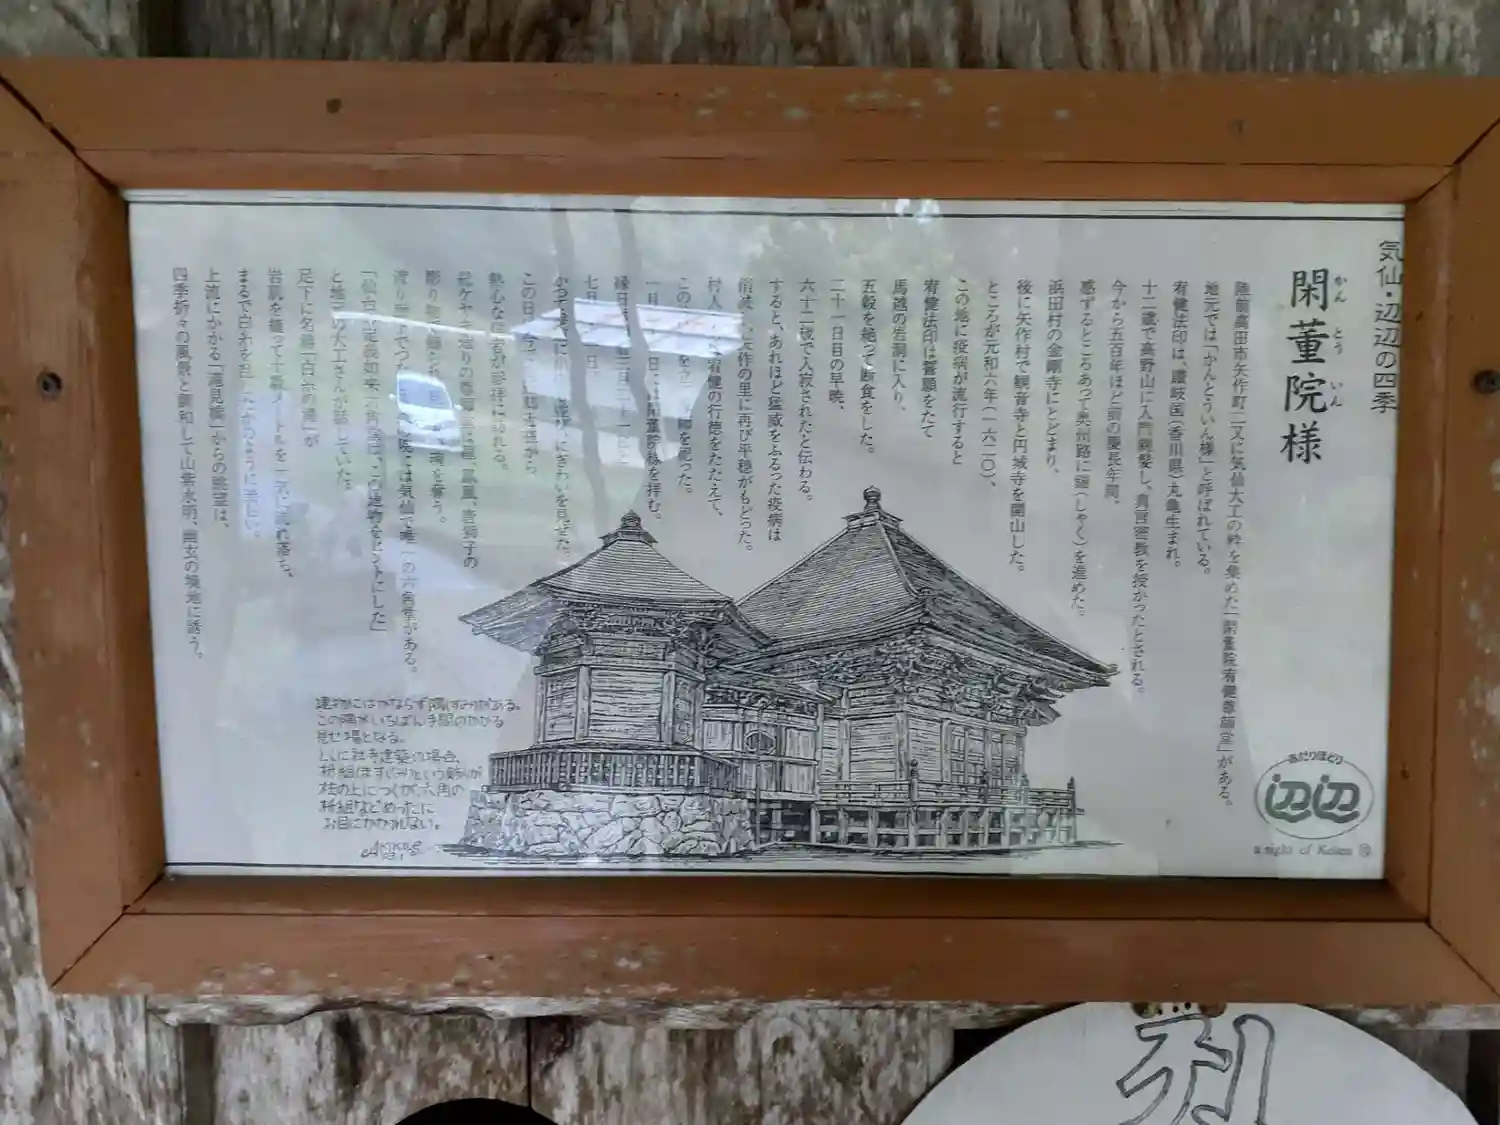 気仙・辺辺の四季
閑董院様
かん とう いん
陸前高田市矢作町二又に気仙大工の粋を集めた「閑董院宥健尊師堂」がある。
地元では「かんとういん様」と呼ばれている。
宥健法印は、讃岐国(香川県)丸亀生まれ。
十二歳で高野山に入門剃髪し、真言密教を授かったとされる。
今から五百年ほど前の慶長年間、
感ずるところあって奥州路に錫(しゃく)を進めた。
浜田村の金剛寺にとどまり、
後に矢作村で観音寺と円城寺を開山した。
ところが元和六年(一六二〇)、
この地に疫病が流行すると
宥健法印は誓願をたて
馬越の岩洞に入り、
五穀を絶って断食をした。
二十一日目の早暁、
六十二歳で入寂されたと伝わる。
すると、あれほど猛威をふるった疫病は
消滅し、矢作の里に再び平穏がもどった。
村人は宥健の行徳をたたえて、
この地に を祀った。
一月 日には閑董院様を拝む。
縁日は 三月二十一日と
七月 日、
かつて にぎわいを見せた。
この日 から
熱心な信者が参拝に訪れる。
総ケヤキ造りの尊師堂は龍、鳳凰、唐獅子の
彫り物で飾られ、見 魂を奪う。
渡り廊下でつな には気仙で唯一の六角堂がある。
「仙台の定義如来の六角堂は、この建物をヒントにした」
と地元の大工さんが話していた。
足下に名瀑「白糸の滝」が
岩肌を縫って十数メートルを一気に流れ落ち、
まるで白糸を乱したかのように美しい。
上流にかかる「滝見橋」からの眺望は、
四季折々の風景と調和して山紫水明、幽玄の境地に誘う。
建物にはかならず隅(すみ)がある。
この隅がいちばん手間のかかる
見せ場となる。
とくに社寺建築の場合、
枡組(ますぐみ)という飾りが
柱の上につくが、六角の
枡組などめったに
お目にかかれない。
あたりほとり
辺辺
a sight of Kesen